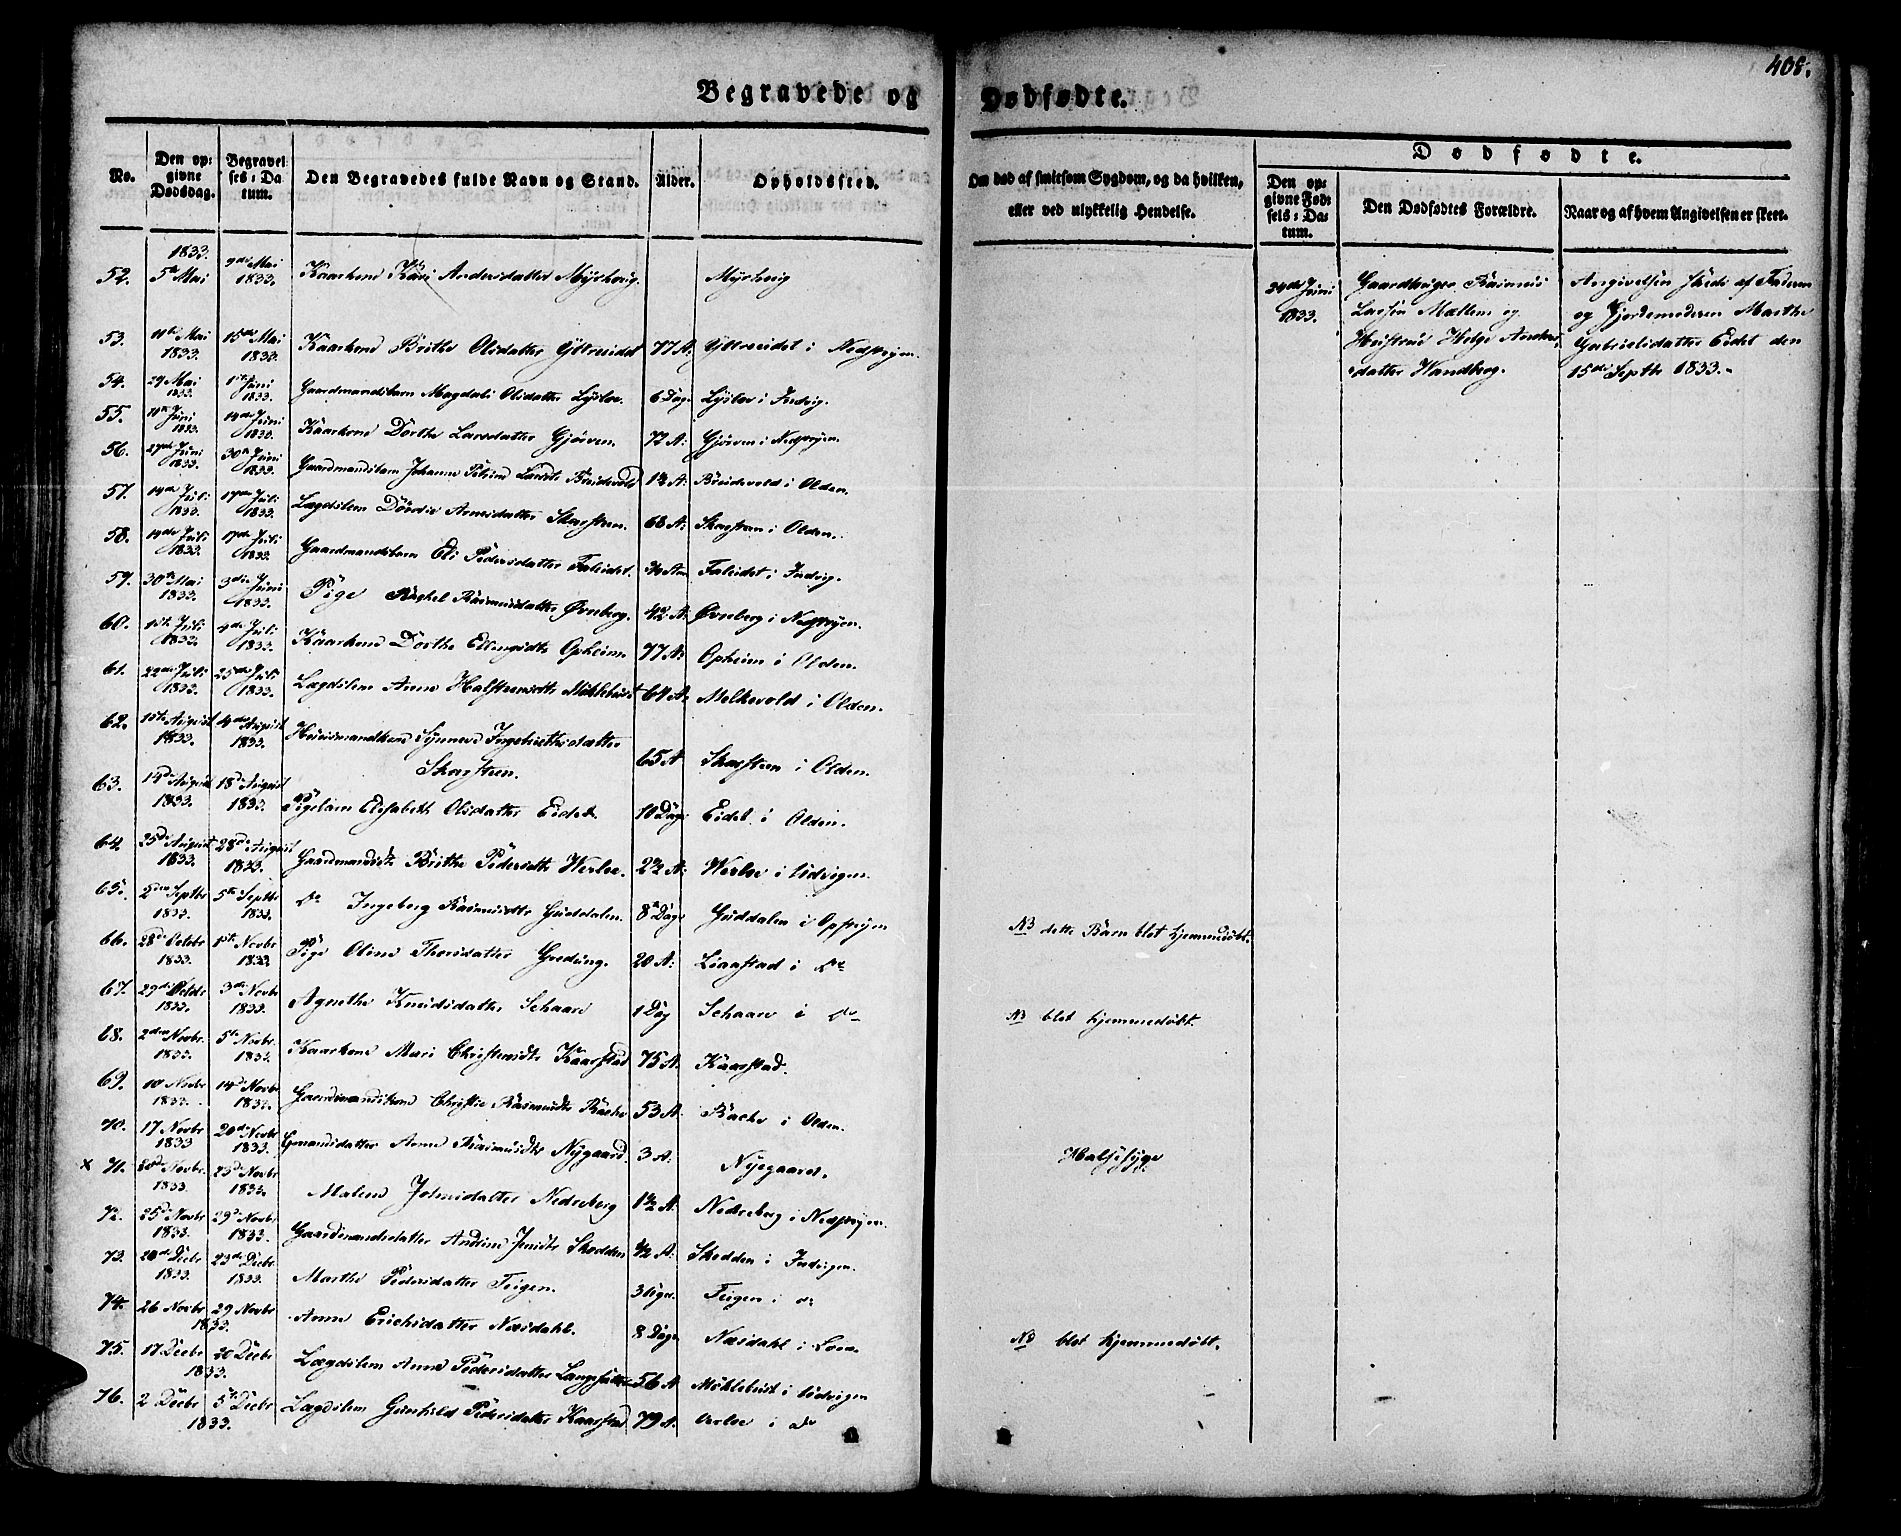 408.
Begravede og Dødfødte.
No.
Den opgivne Dødsdag.
Begravelses-Datum.
Den Begravedes fulde Navn og Stand.
Alder.
Opholdssted.
Om død af smitsom Sygdom, og da hvilken, eller ved ulykkelig Hendelse.
Dødfødte.
Den opgivne Fødsels-Datum.
Den Dødfødtes Forældre.
Naar og af hvem Angivelsen er skeet.
52. 1833. 5te Mai 9de Mai 1833. Kaarkone Kari Andersdatter Myhlevig
53. 11te Mai 1833. 15de Mai 1833. Kaarkone Brithe Olsdatter Yttreeidet 77 A: Yttreeidet i Nedstryen.
54. 29 Mai 1833. 1ste Juni 1833. Gaardmandsbarn Magdali Olsdatter 6 Dag. i Indvig.
55. 11te Juni 1833. 14de Juni 1833. Kaarkone Dorthe Larsdatter Gjørven. 72 A: Gjørven i Nedstryen.
56. 27de Juni 1833. 30te Juni 1833. Gaardmandsbarn Johanne 1½ A: i Olden.
57. 14de Juli 1833. 17de Juli 1833. Lægdslem Dordie Arnesdatter Skarsteen. 68 A: Skarsteen i Olden.
58. 14de Juli 1833. 17de Juli 1833. Gaardmandsbarn Eli Pedersdatter Faleidet. Faleidet i Indvig.
59. 30te Mai 1833. 3die Juni 1833. Pige Raghel Rasmusdatter Øvreberg. 42 A: Øvreberg i Nedstryen.
60. 1ste Juli 1833. 4de Juli 1833. Kaarkone Dorthe Ellingsdtr Opheim. 77 A: Opheim i Olden.
61. 22de Juli 1833. 25de Juli 1833. Lægdslem Anne Halsteensdtr Mÿklebust 64 A: Melkevold i Olden.
62. 1ste August 1833. 4de August 1833. Huusmandkone Synneve Ingebrethsdatter
Skarsteen. 65 A Skarsteen i Olden.
63. 14de August 1833. 18de August 1833. Pigebarn Elisabeth Olsdatter Eidet. 10 Dage Eidet i Olden.
64. 25de August 1833. 28de August 1833. Gaardmandsdtr Brithe Pedersdtr Werloe. 2½ A: Werloe i Udvigen
65. 2den Septbr 1833. 5te Septbr 1833. do Ingeborg Rasmusdtr Guddalen. 8 Dage Guddalen i Opstryen NB dette Barn blot hjemmedøbt.
66. 28de Octobr 1833. 1ste Novbr 1833. Pige Oline Thorsdatter 20 A: i do
67. 29de Octobr 1833. 3die Novbr 1833. Agnethe Knudsdatter Schaare 1 Dag Schaare i do NB blot hjemmedøbt.
68. 2den Novbr. 1833. 5te Novbr. 1833. Kaarkone Mari Christensdtr Kaarstad 75 A: Kaarstad.
69. 10 Novbr 1833. 14de Novbr 1833. Gaardmandskone Christie Rasmusdtr Rache 53 A: Rache i Olden.
70. 17 Novbr 1833 20de Novbr 1833. Gmandsdatter Anne Rasmusdtr Nygaard. 3 A: Nyegaard. Halssyge
x 71. 20de Novbr. 1833 23de Novbr 1833. Malene Johnsdatter Nedreberg 1½ A: Nedreberg i Nedstryen.
72. 25de Novbr 1833. 29de Novbr 1833. Gaardmandsdatter Andrine Jensdtr Skedden ½ A: Skedden i Indvigen.
73. 20de Decbr 1833. 23de Decbr 1833. Marthe Pedersdatter Teigen. 3 Uger. Teigen i do
74. 26 Novbr 29 Novbr 1833. Anne Erichsdatter Næsdahl. 8 Dage Næsdahl i Loen NB blot hjemmedøbt.
75. 17 Decbr 20 Decbr 1833. Lægdslem Anne Pedersdatter 56 A Mÿklebust i Udvigen
76. 2 Decbr 5te Decbr 1833. Lægdslem Gunhild Pedersdatter Kaarstad 79 A: Verloe i do
24de Juni 1833.
Gaardbruger Rasmus
Larsen Mællem og
Hustrue Helge Anders-
datter Wandberg.
Angivelsen skede af Faderen
og Jordemoderen Marthe
Gabrielsdatter Eidet den
15de Septbr 1833.